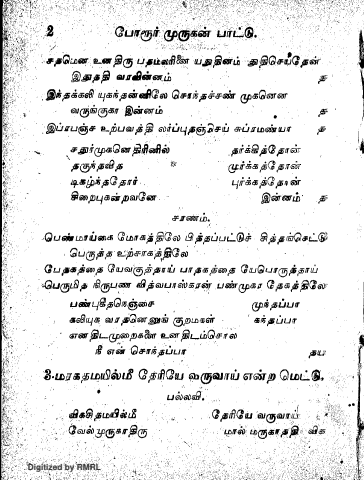 2 போரூர் முருகன் பாட்டு.
சதமென உனதிரு பதமலரிணை யனுதினம் துதிசெய்தேன்
இதுததி வாவின்னம் த
இந்தக்கலி யுகந்தன்னிலே சொந்தச்சண் முகனென
வருங்குகா இன்னம் த
இப்ரபஞ்ச உற்பவத்தி லர்ப்புதஞ்செய் சுப்ரமண்யா த
சதுர்முகனெதிரினில் தர்க்கித்தோன்
தருந்தவித மூர்க்கத்தோன்
டிகழ்ந்ததோர் புர்க்கத்தோன்
சிறைபுகன்றவனே இன்னம் த
சரணம்.
பெண்மாய்கை மோகத்திலே பித்தப்பட்டுச் சித்தங்கெட்டு
பெருத்த உற்சாகத்திலே
பேதகத்தை யேவகுத்தாய் பாதகத்தை யேபொருத்தாய்
பெருமித நிருபண வித்வபாஸ்கரன் பண்முகா தேகத்திலே
பண்புகிதநெஞ்சை முந்தப்பா
கலியுக வரதனெனுங் குறமகள் கந்தப்பா
எனதிடமுறைகளை உனதிடம்சொல
நீ என் சொந்தப்பா தய
3-மரகதமயில்மீ தேரியே வருவாய் என்ற மெட்டு.
பல்லவி.
விகசிதமயில்மீ தேரியே வருவாய்
வேல்முருகாதிரு மால் மருகாததி விக
Digitized by RMRL